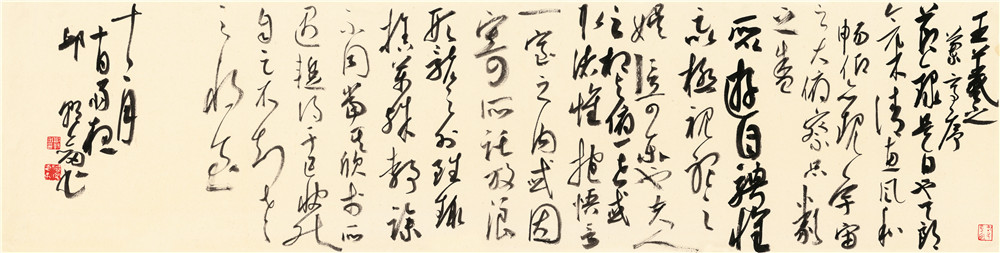 王羲之
蘭亭序
是日也天朗
清惠風和
暢仰觀宇宙
之大俯察品類
之盛
所以遊目騁懷
足以極視聽之
娛信可樂也夫人
之相與俯仰一世或
取諸懷抱悟言
一室之內或因
寄所託放浪
形骸之外雖趣
萬殊靜躁
不同當其欣於所
遇暫得於己快然
自足不知老
之將至
十二月